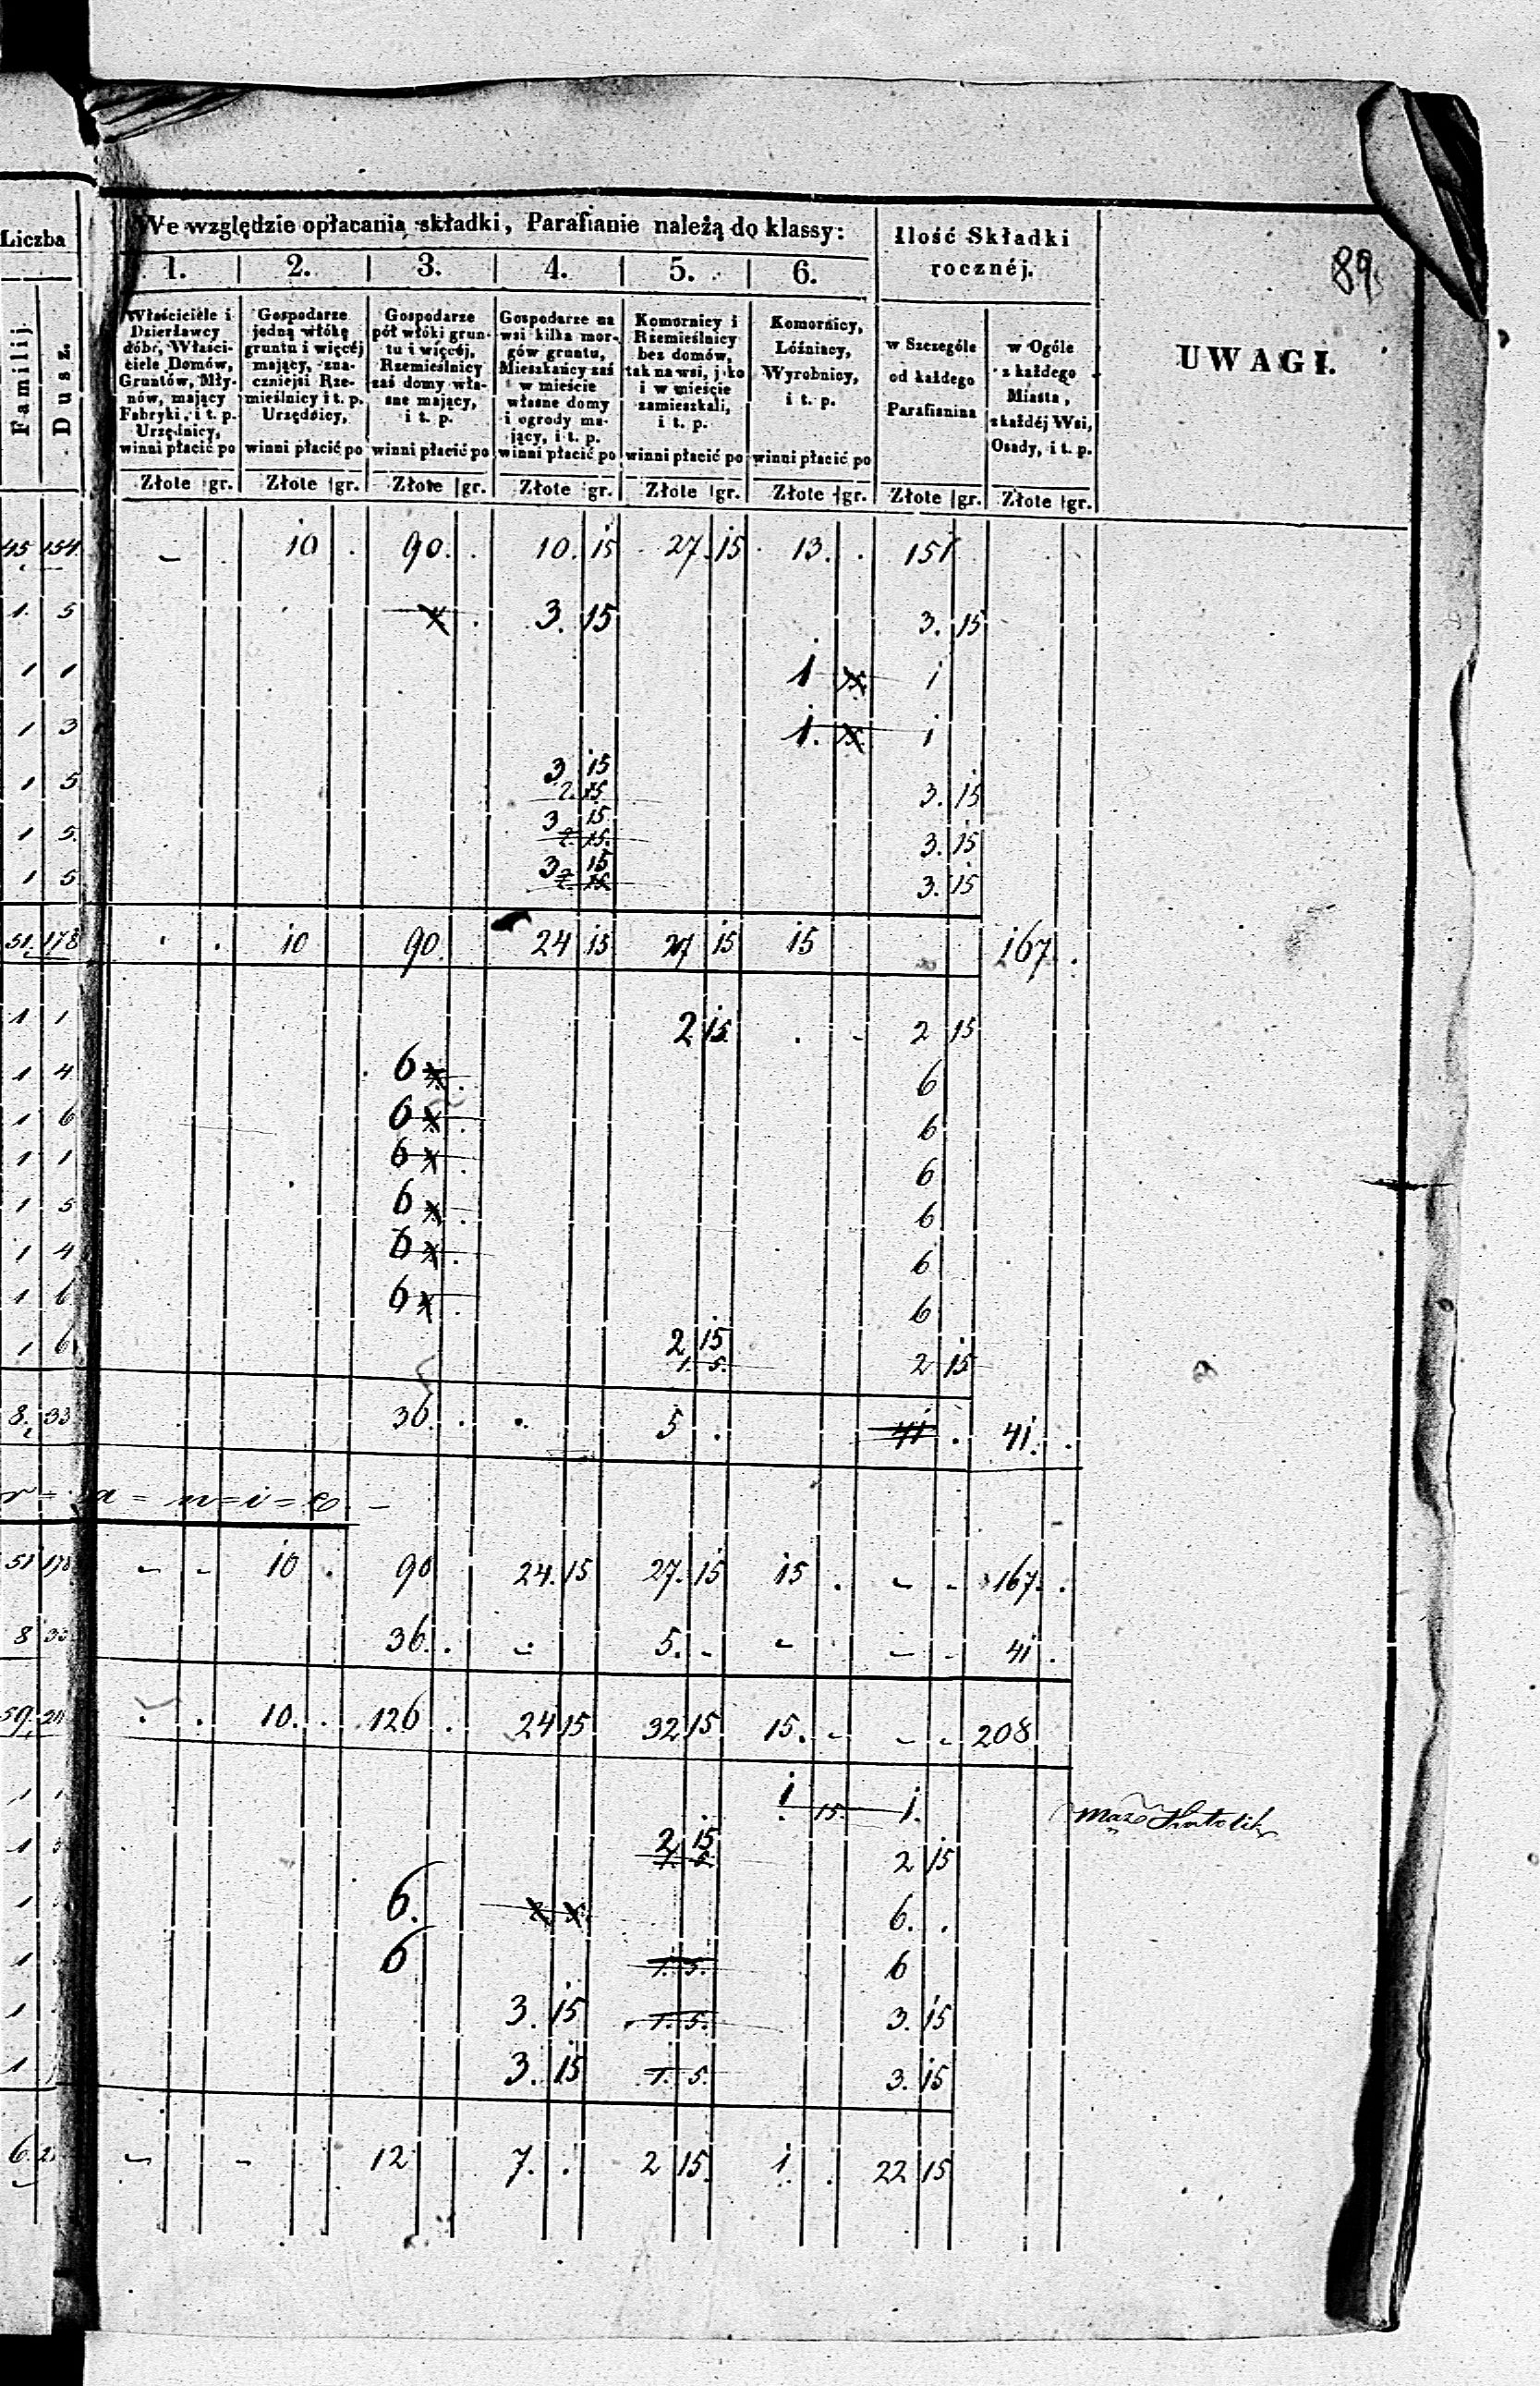 89.
Liczba
We względzie opłacania składki, Parafianie należą do klassy:
Ilość Składki rocznéj.
UWAGI.
1. 2. 3. 4. 5. 6.
Familij.
Dusz.
Właściciele i Dzierżawcy dóbr, Właściciele Domów, Gruntów, Młynów, mający Fabryki, i t. p. Urzędnicy, winni płacić po
Gospodarze jedną włókę gruntu i więcéj mający, znaczniejsi Rzemieślnicy i t. p. Urzędnicy, winni płacić po
Gospodarze pół włóki gruntu i więcéj, Rzemieślnicy zaś domy własne mający, i t. p. winni płacić po
Gospodarze na wsi kilka morgów gruntu, Mieszkańcy zaś w mieście własne domy i ogrody mający, i t. p. winni płacić po
Komornicy i Rzemieślnicy bez domów, tak na wsi, jako i w mieście zamieszkali, i t. p. winni płacić po
Komornicy, Lóźniacy, Wyrobnicy, i t. p. winni płacić po
w Szczególe od każdego Parafianina
w Ogóle z każdego Miasta, z każdéj Wsi, Osady, i t. p.
Złote gr. Złote gr. Złote gr. Złote gr. Złote gr. Złote gr. Złote gr. Złote gr.
45 154 - 10 . 90. . 10. 15 27. 15 13. . 151
1. 5 3. 15 3. 15
1 1 1 i
1 3 1. i
1 5 3 15 3. 15
2. 15
1 5. 3 15 3. 15
2. 15.
1 5 3 15 3. 15
2. 15
51. 178 . . 10 90. 24 15 27 15 15 167 .
1 1 2 15 . - 2 15
1 4 6 6
1 6 6 6
1 1 6 6
1 5 6 6
1 4 6 6
1 6 6 6
1 6 2 15 2 15
1. 5.
8. 33 36. . . 5 . 41 . 41. .
51 178 - - 10 . 90 24. 15 27. 15 15 . - - 167. .
8 33 36. . - 5. - - - - 41 .
59. 211 . . 10. . 126 . 24 15 32 15 15. - - - 208
1 1 i 15. i.
1 2 15 2 15
1 6. 6. .
1 6 1. 5. 6
1 3. 15 1. 5. 3. 15
1 3. 15 1. 5. 3. 15
6. - - 12 7. . 2 15. 1. . 22 15